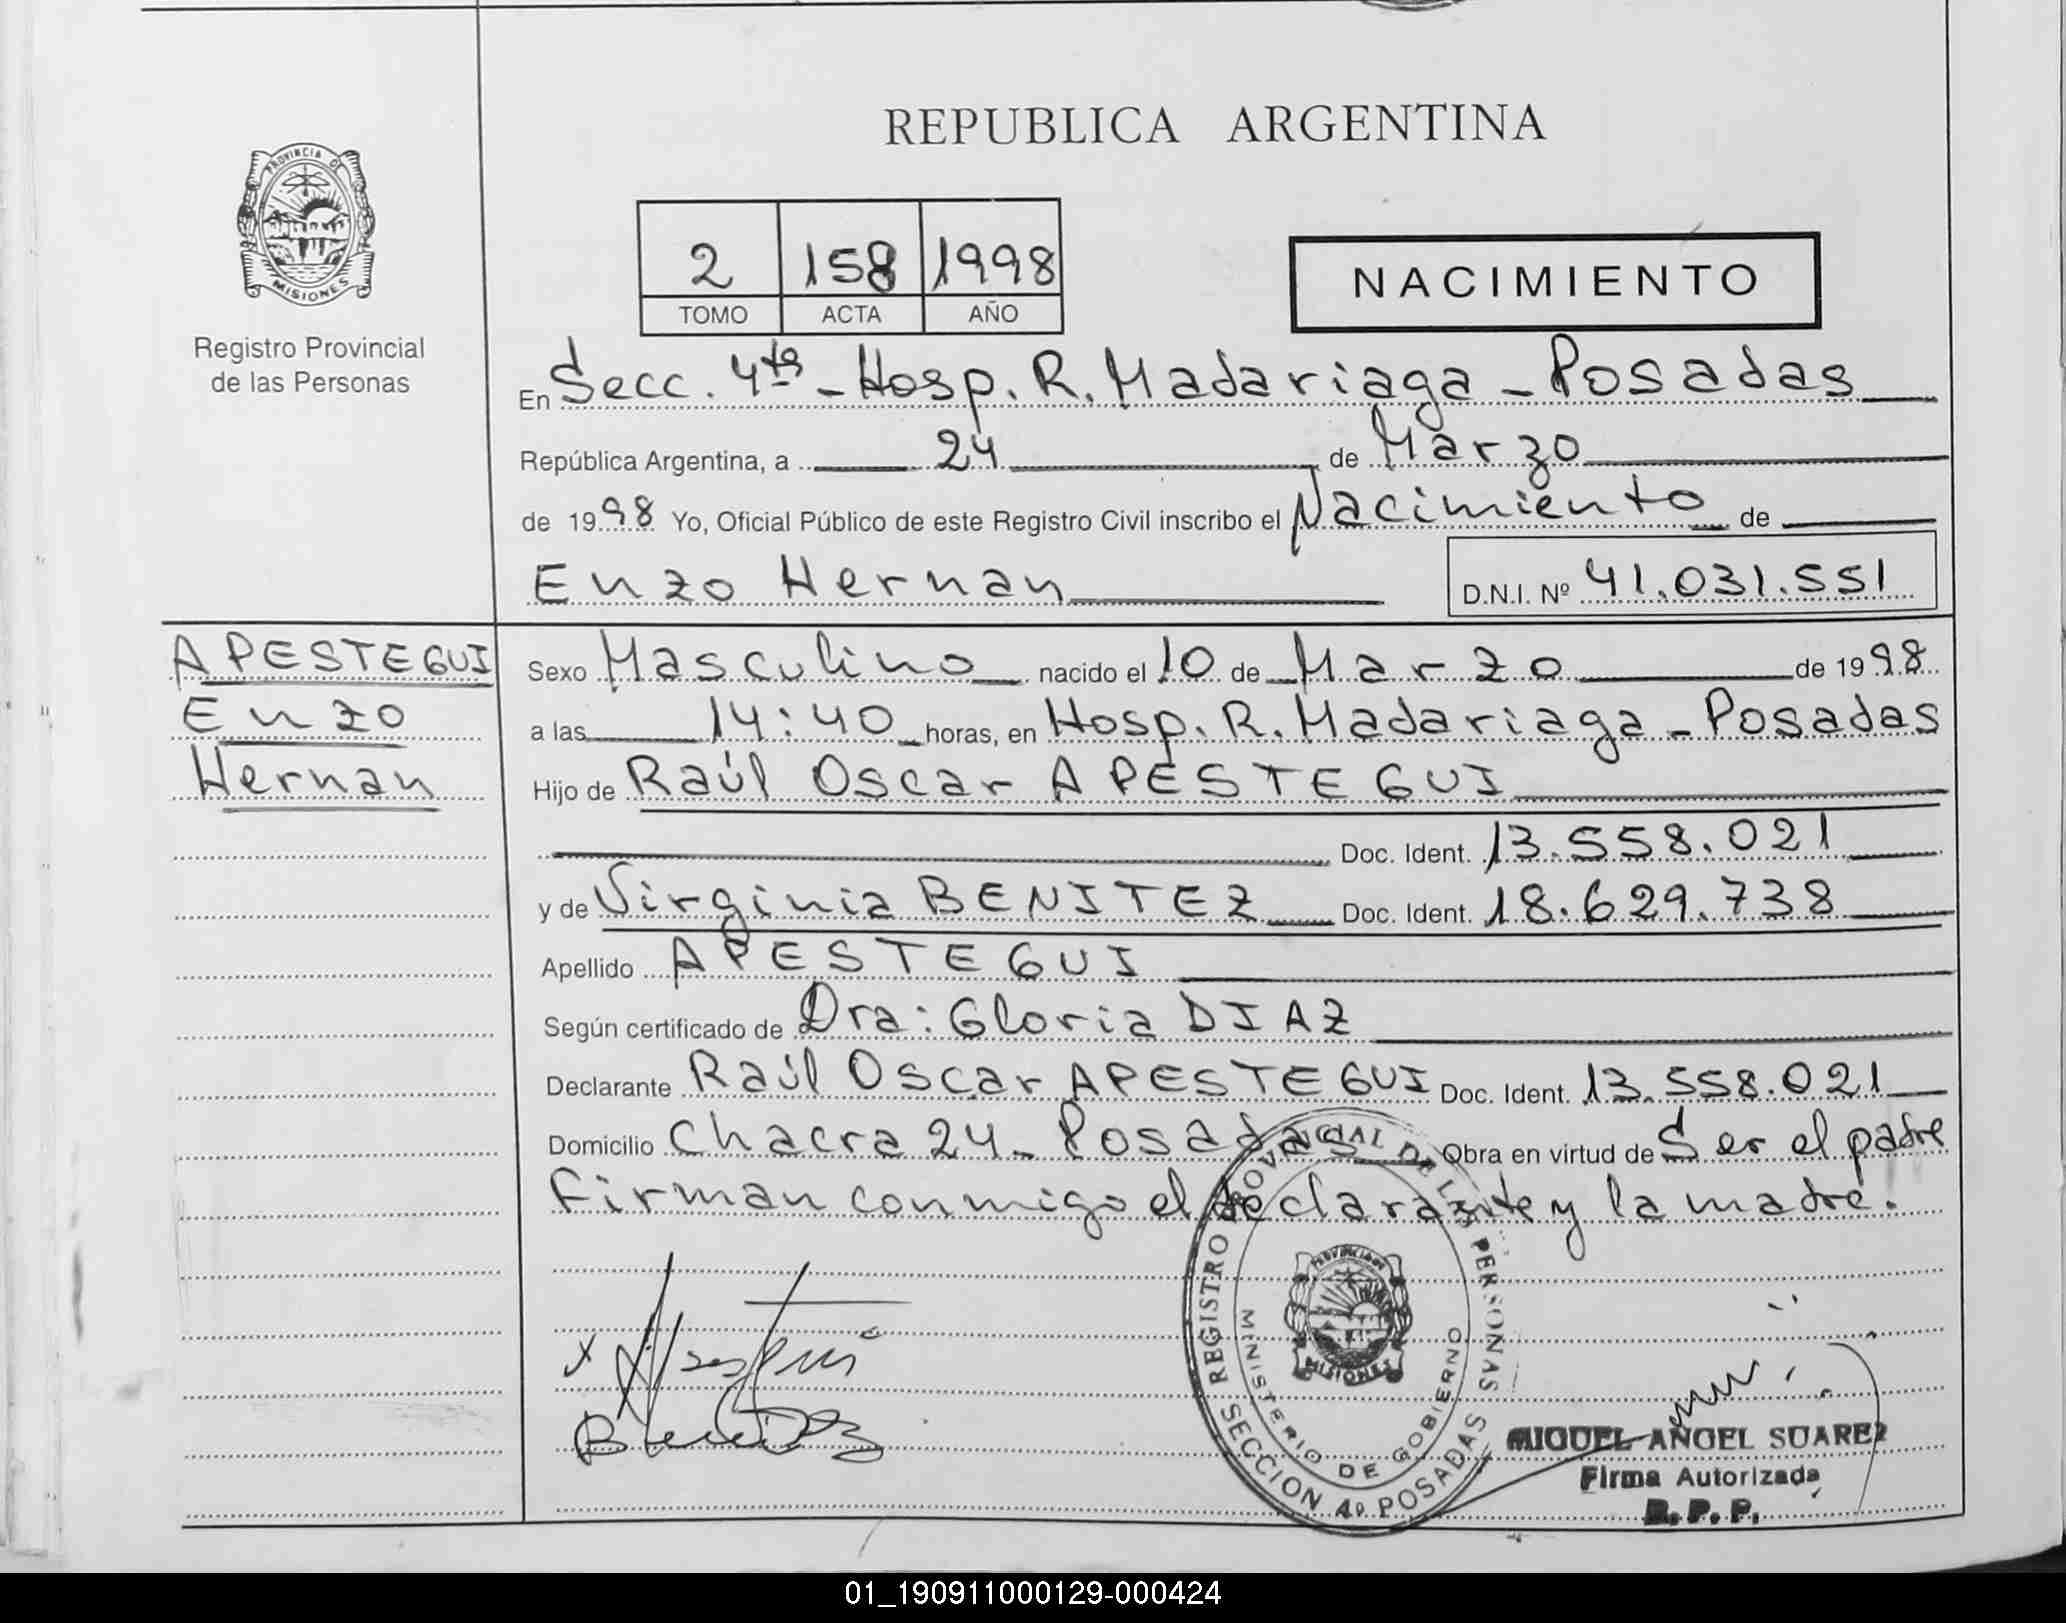 REPUBLICA ARGENTINA
PROVINCIA DE
MISIONES
Registro Provincial
de las Personas
2 158 1998
TOMO ACTA AÑO
NACIMIENTO
En Secc. 4ta - Hosp. R. Madariaga - Posadas
República Argentina, a 24 de Marzo
de 1998 Yo, Oficial Público de este Registro Civil inscribo el Nacimiento de
Enzo Hernan D.N.I. Nº 41.031.551
APESTEGUI
Enzo
Hernan
Sexo Masculino nacido el 10 de Marzo de 1998
a las 14:40 horas, en Hosp. R. Madariaga - Posadas
Hijo de Raúl Oscar APESTEGUI
Doc. Ident. 13.558.021
y de Virginia BENITEZ Doc. Ident. 18.629.738
Apellido APESTEGUI
Según certificado de Dra: Gloria DIAZ
Declarante Raúl Oscar APESTEGUI Doc. Ident. 13.558.021
Domicilio Chacra 24 - Posadas Obra en virtud de Ser el padre
Firman conmigo el declarante y la madre.
REGISTRO PROVINCIAL DE LAS PERSONAS
SECCION 4º POSADAS
MINISTERIO DE GOBIERNO
PROVINCIA DE
MISIONES
Benitez
MIGUEL ANGEL SUAREZ
Firma Autorizada
R. P. P.
01_190911000129-000424